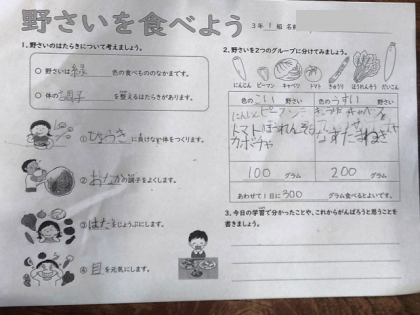 野さいを食べよう
3年 1 組 名前
1.野さいのはたらきについて考えましょう。
○ 野さいは 緑 色の食べもののなかまです。
○ 体の 調子 を整えるはたらきがあります。
① びょうき に負けない体をつくります。
② おなか の調子をよくします。
③ はだ をじょうぶにします。
④ 目 を元気にします。
2.野さいを2つのグループに分けてみましょう。
にんじん ピーマン キャベツ トマト きゅうり ほうれんそう だいこん
色の こい 野さい 色の うすい 野さい
にんじん ピーマン
トマト ほうれんそう なす たまねぎ
カボチャ
100 グラム 200 グラム
あわせて1日に 300 グラム食べるとよいです。
3.今日の学習で分かったことや、これからがんばろうと思うことを
書きましょう。